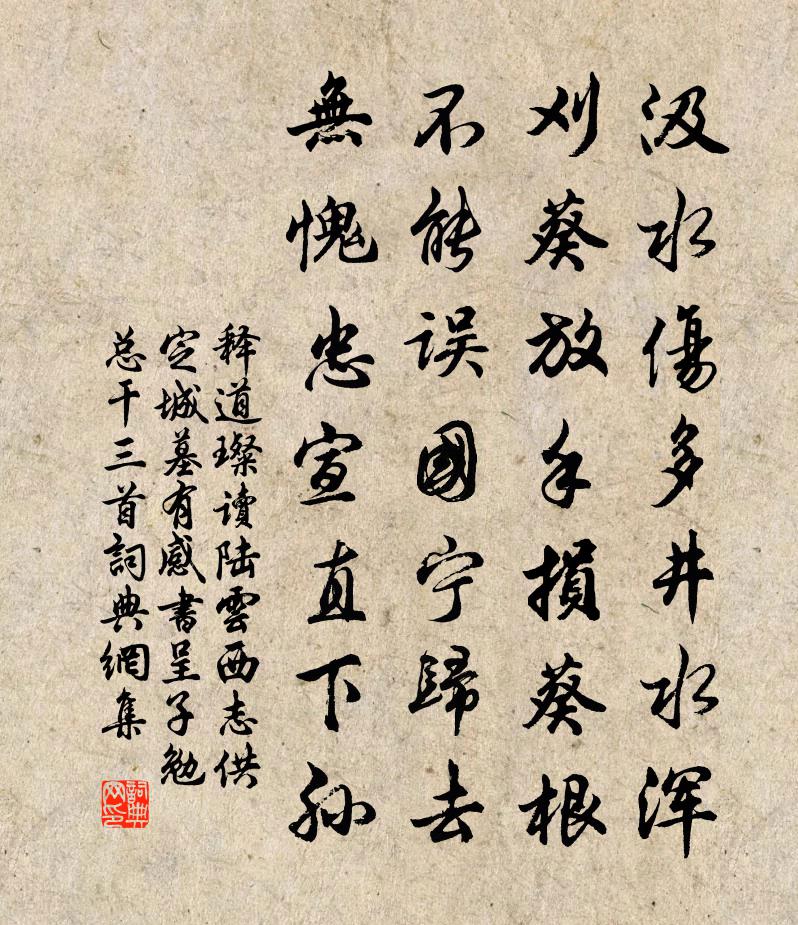 汲水傷多井水浑
刈葵放手損葵根
不能误國宁歸去
無愧忠宣直下孙
释道璨读陆雲西志供
定城墓有感書呈子勉
总干三首詞典網集
詞典网印